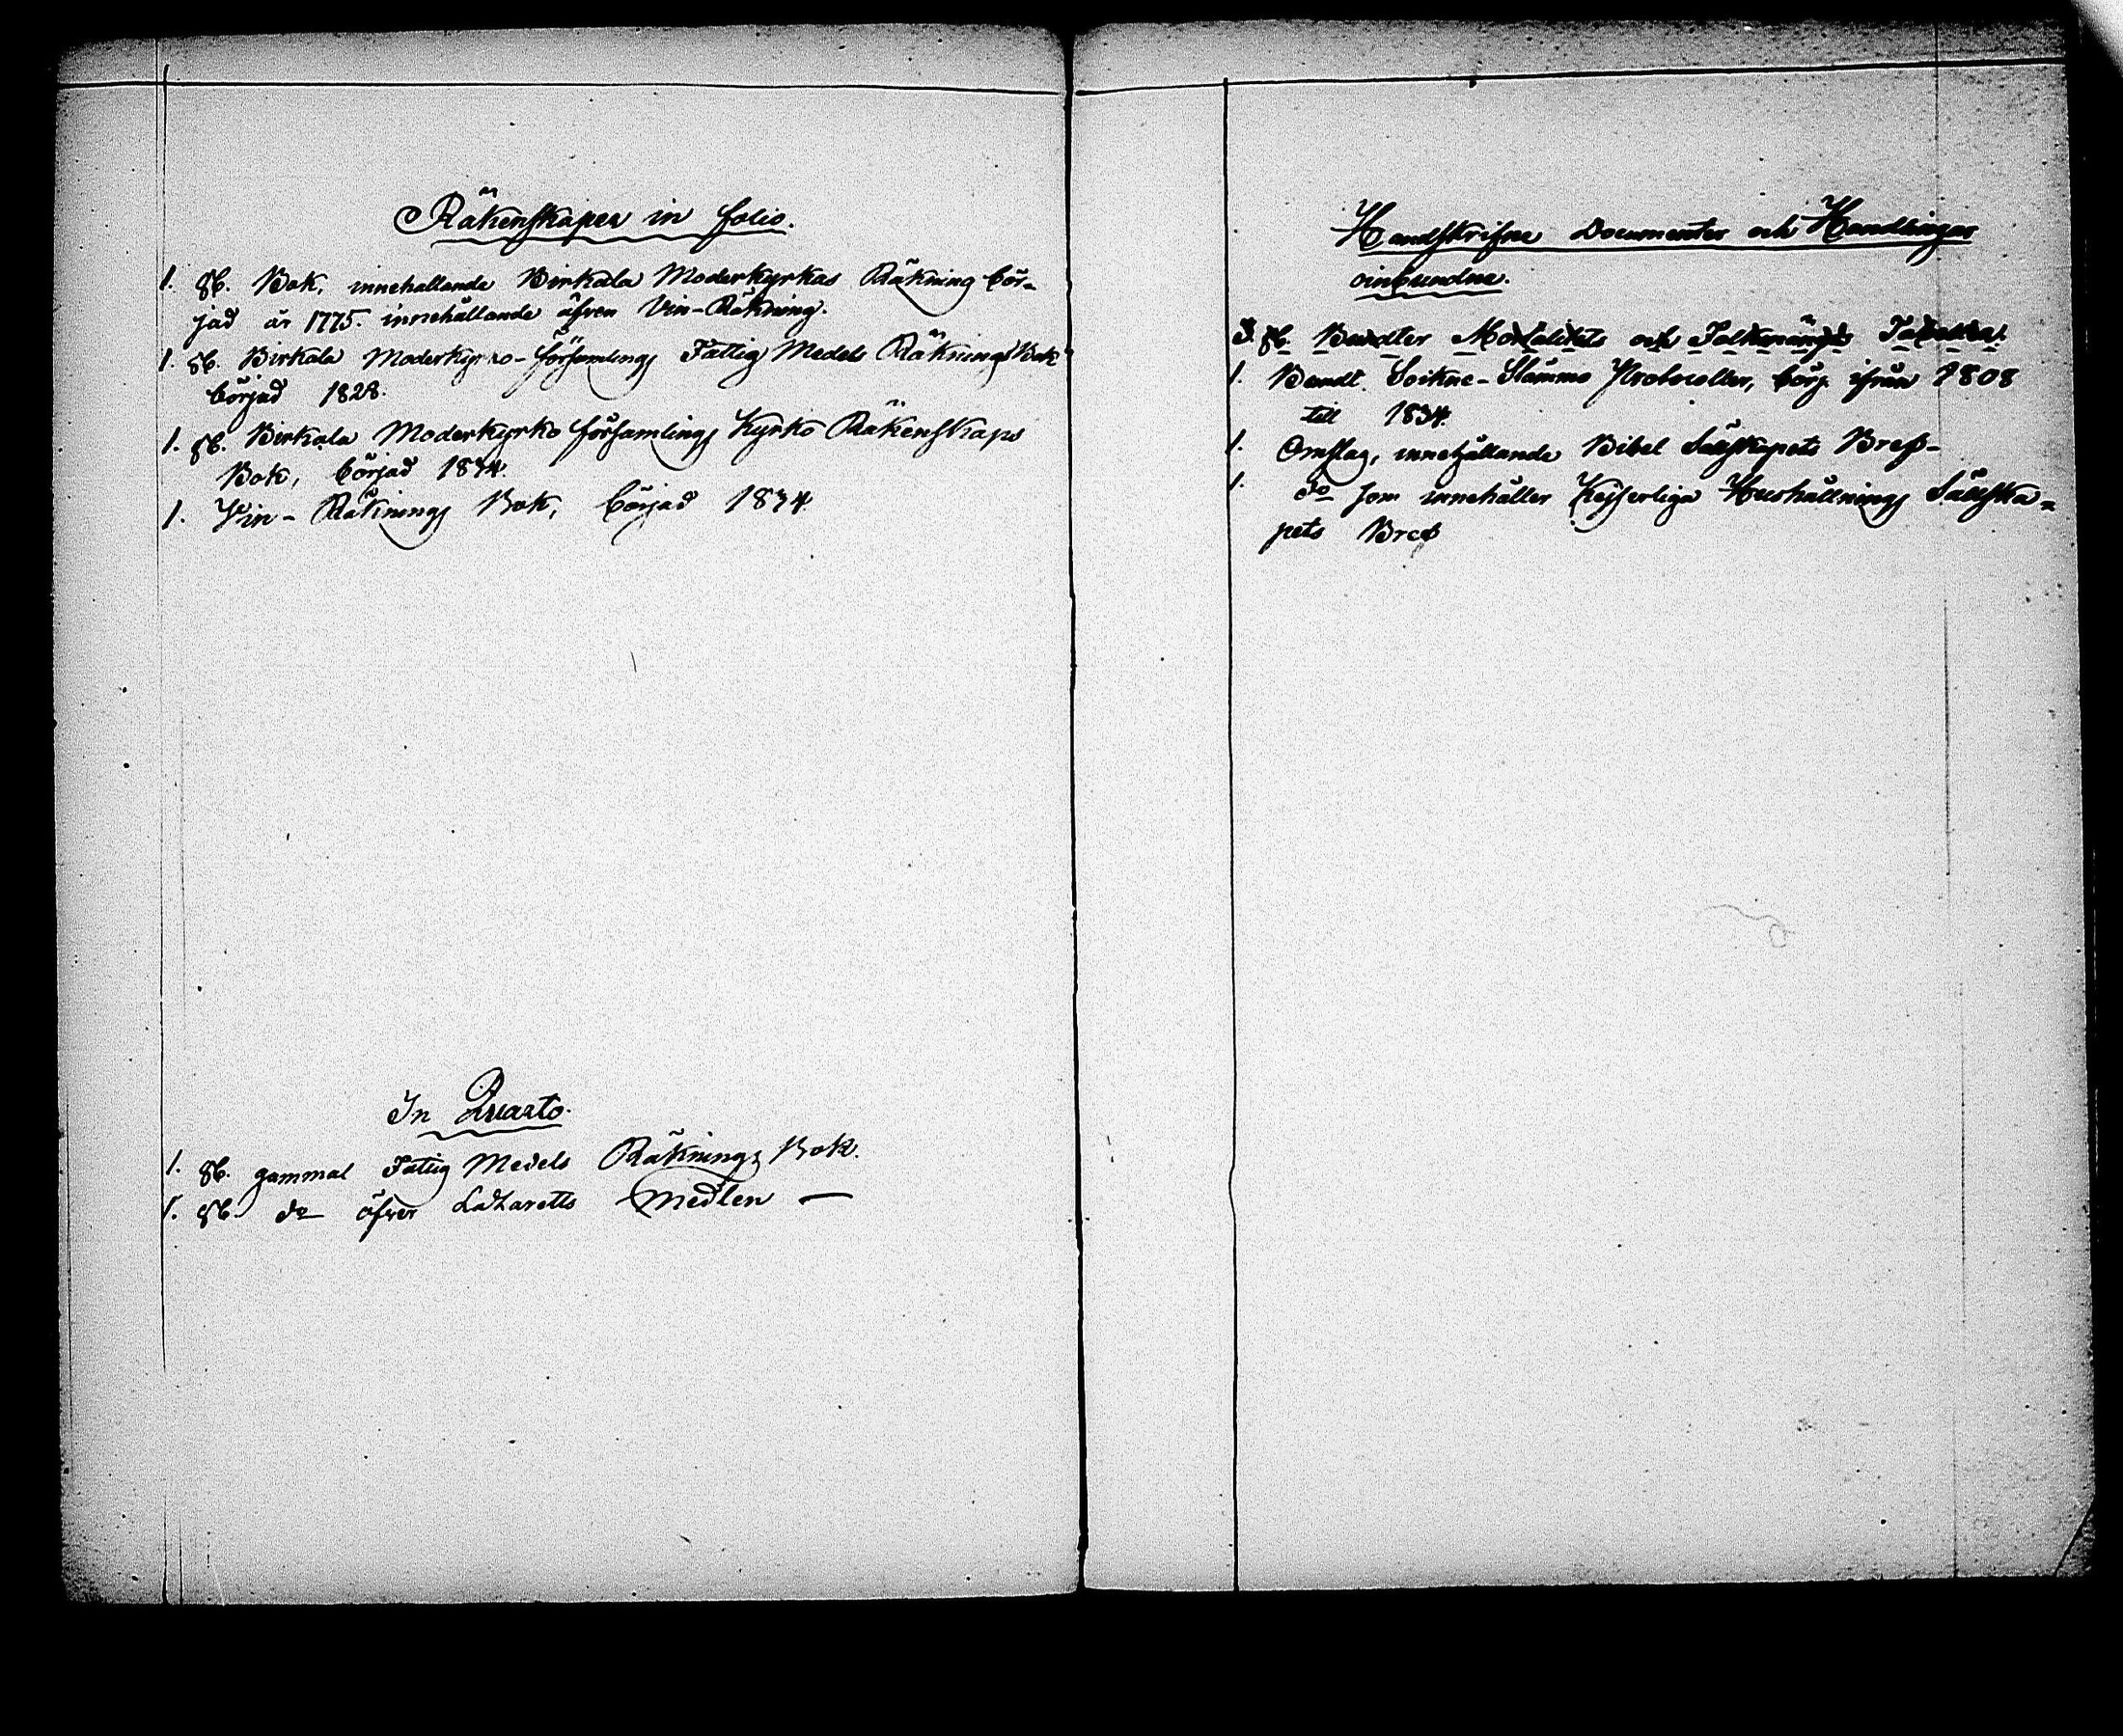 Räkenskaper in folio.
1. st. Bok, innehallande Birkala Moderkyrkas Räkning bör-
jad år 1775. innehållande äfven Vin-Räkning.
1. st. Birkala Moderkyrko-församlings Fattig Medels Räknings Bok
börjad 1828.
1. st. Birkala Moderkyrko församlings Kyrko Räkenskaps
Bok, börjad 1834.
1. Vin-Räknings Bok, börjad 1834
In Quarto.
1. st. gammal Fattig Medels Räknings Bok.
1. st. do öfver Lazaretts Medlen —
Handskrifne Documenter och Handlingar
oinbundne.
3. st. Bundter Mortalitets och Folkmängds Tabeller.
1. Bundt Sockne-Stämmo Protocoller, börj. ifrån 1808
till 1834.
1. Omslag, innehållande Bibel Sällskapets Bref-
1. do som innehåller Kejserliga Hushållnings Sällska-
pets Bref